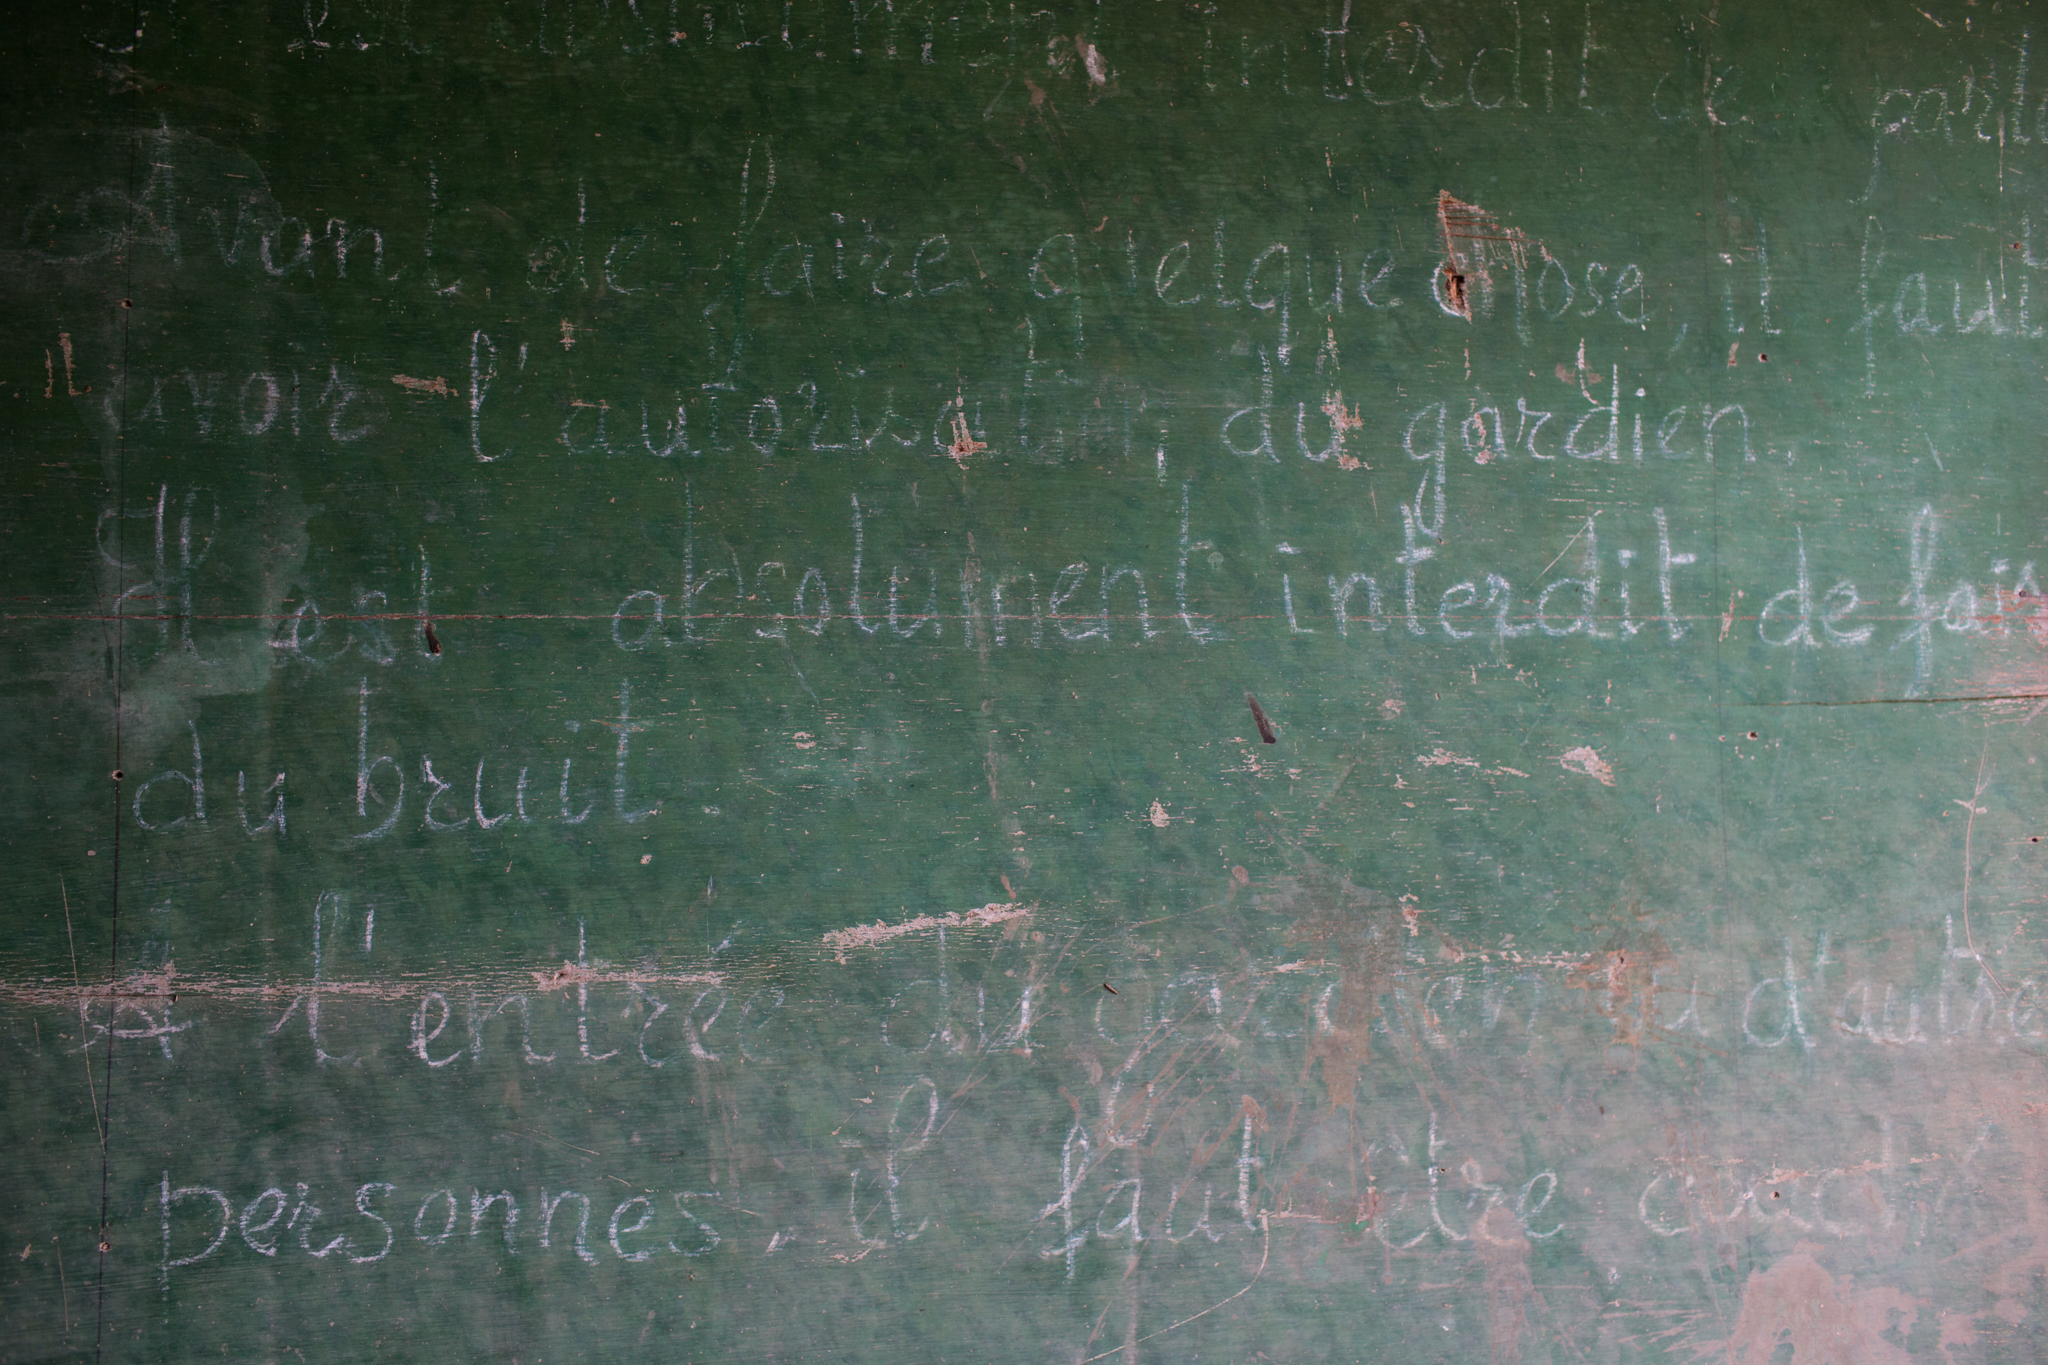 interdit de
Avant de faire quelque chose, il faut
avoir l'autorisation, du gardien.
Il est absolument interdit de fair
du bruit.
A l'entrée du gardien ou d'autre
personnes, il faut être